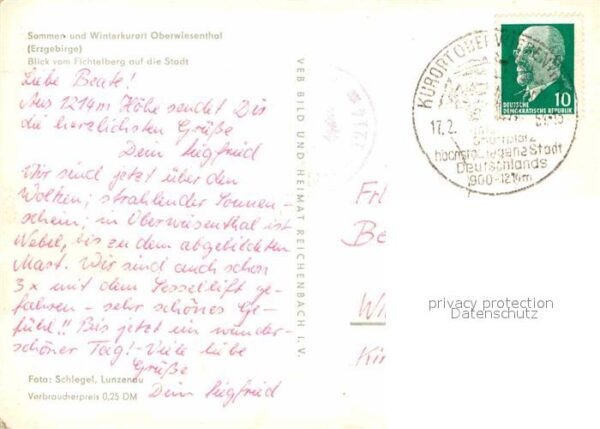 Sommer- und Winterkurort Oberwiesenthal
(Erzgebirge)
Blick vom Fichtelberg auf die Stadt
Liebe Beate!
Aus 1214m Höhe sendet Dir
die herzlichsten Grüße
Dein Siegfried
Wir sind jetzt über den
Wolken; strahlender Sonnen-
schein; in Oberwiesenthal ist
Nebel, bis zu dem abgebildeten
Mast. Wir sind auch schon
3x mit dem Sessellift ge-
fahren - sehr schönes Ge-
fühl!! Bis jetzt ein wunder-
schöner Tag! - Viele liebe
Grüße
Dein Siegfried
Foto: Schlegel, Lunzenau
Verbraucherpreis 0,25 DM
VEB BILD UND HEIMAT REICHENBACH I. V.
KURORT OBERWIESENTHAL
17.2.
Sportplatz
höchstgelegene Stadt
Deutschlands
900-1214m
DEUTSCHE
DEMOKRATISCHE REPUBLIK
10
Fr
Be
W
Ki
privacy protection
Datenschutz